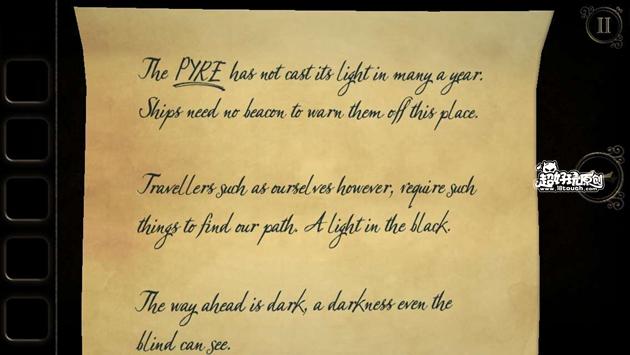 The PYRE has not cast its light in many a year.
Ships need no beacon to warn them off this place.
Travellers such as ourselves however, require such
things to find our path. A light in the black.
超好玩原创
www.18touch.com
The way ahead is dark, a darkness even the
blind can see.